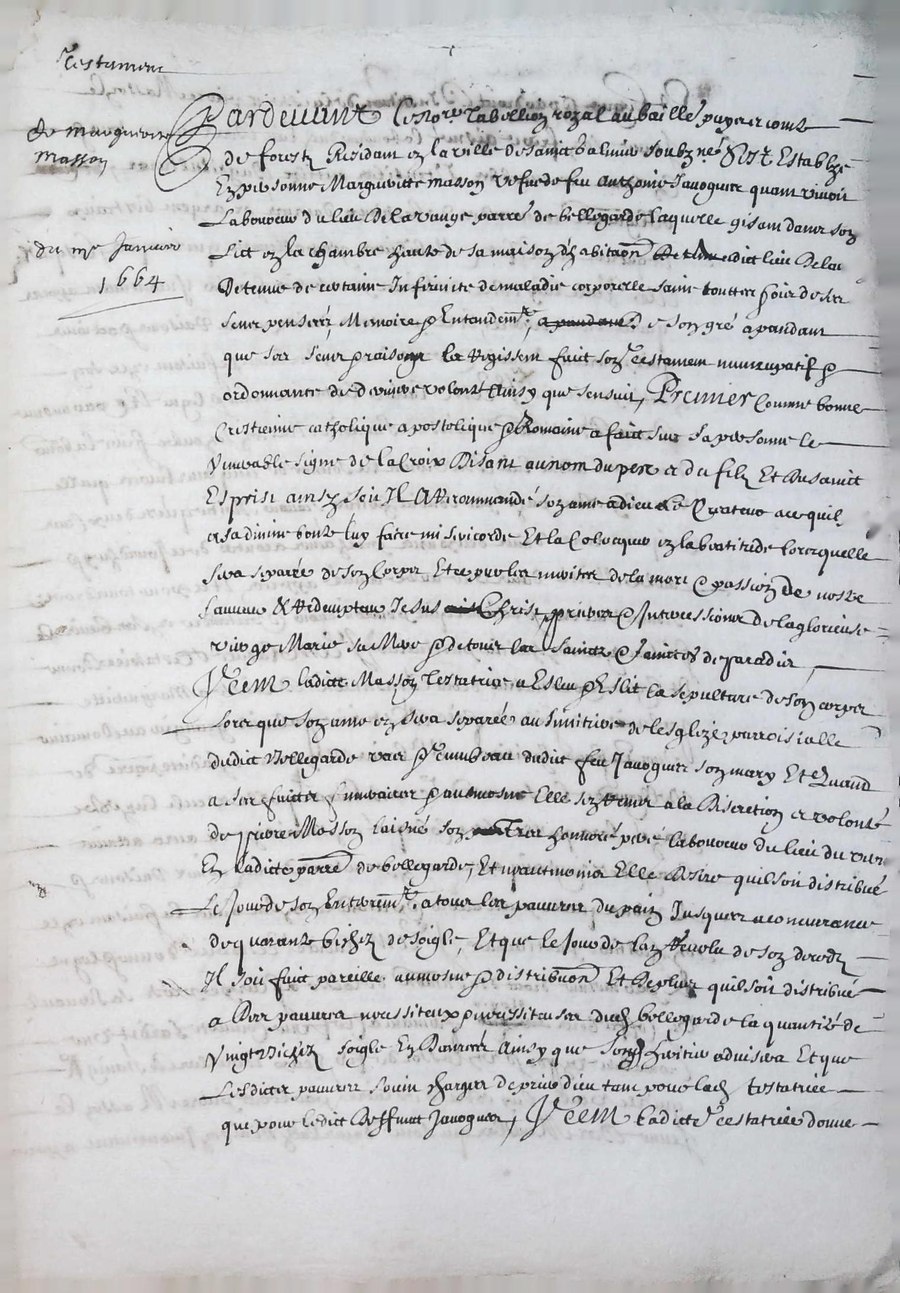 Testament
de marguerite
masson
du me Janvier
1664
Pardevant le nore Tabellion royal au baille, pays et comté
de forestz Residant en la ville de sainct Galmier soubz né
En personne Marguerite masson vefve de feu anthoine Javoguier quant vivoit
Laboureur du lieu de la range parre de bellegarde, laquelle gisant dans son
Lict en la chambre haute de sa maison d'habitaon dudict lieu de la
detenue de certaine Infirmité de maladie corporelle saine touttes fois de ses
sens pensées, Memoire & Entendemt, de son gré apandant
que ses sens & raison la regissent fait son testament nuncupatif &
ordonnance de derniere volonté Ainsy que sensuit, Premier Comme bonne
Crestienne catholique apostolique & Romaine a fait sur sa personne le
Venerable signe de la Croix Disant au nom du pere et du filz Et du sainct
Esprist ainsy soit Il A Recommandé son ame a dieu le Createur a ce quil
a sa divine bonté luy faire misericorde Et la Colocquer en la beatitude lorsquelle
sera separée de son Corps Et ce par les merites de la mort & passion de nostre
sauveur & Redempteur Jesus Christ prieres & Intercessions de la glorieuse
vierge Marie sa Mere & de tous les Saincts & sainctes de paradis,
Item ladicte Masson Testatrice a Esleu & Eslit la sepulture de son corps
lors que son ame en sera separée au simitiere de lesglize parroissialle
dudict Bellegarde vas & tumbeau dudict feu Javoguier son mary Et Quand
a ses fraictz funeraires & aumosne Elle sen remet a la Discretion et volonté
de pierre Masson laisné son Tres honnoré pere laboureur du lieu du
En ladicte parre de bellegarde, Et neantmoins Elle desire quil soit distribué
Le Jour de son Enterremt, a tous les pauvres du pain Jusques a concurance
de quarante bichez de soigle, Et que le Jour de lan Revolu de son deced
Il soit fait pareille aumosne & distribuon Et de plus quil soit distribué
a Des pauvres necessiteux parroissiens dud bellegarde la quantité de
Vingt bichez soigle En Danrées Ainsy que son heritier advisera Et que
Lesdictes pauvres soient chargés de prier dieu tant pour lad testatrice
que pour ledict deffunct Javoguier, Item ladicte Testatrice donne